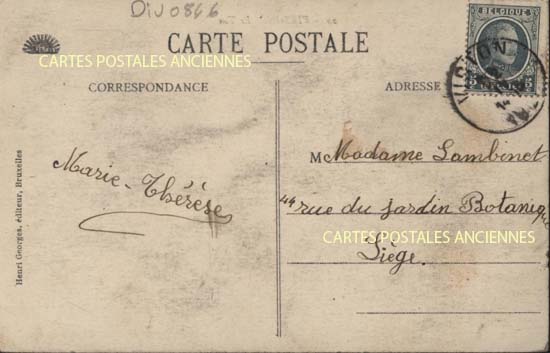 DIV0866
BELGIQUE
CARTE POSTALE
CARTES POSTALES ANCIENNES
CORRESPONDANCE
ADRESSE
VIRTON
M Madame Lambinet
Marie-Thérèse
44 rue du jardin Botaniq
CARTES POSTALES ANCIENNES
Liège.
Henri Georges, éditeur, Bruxelles